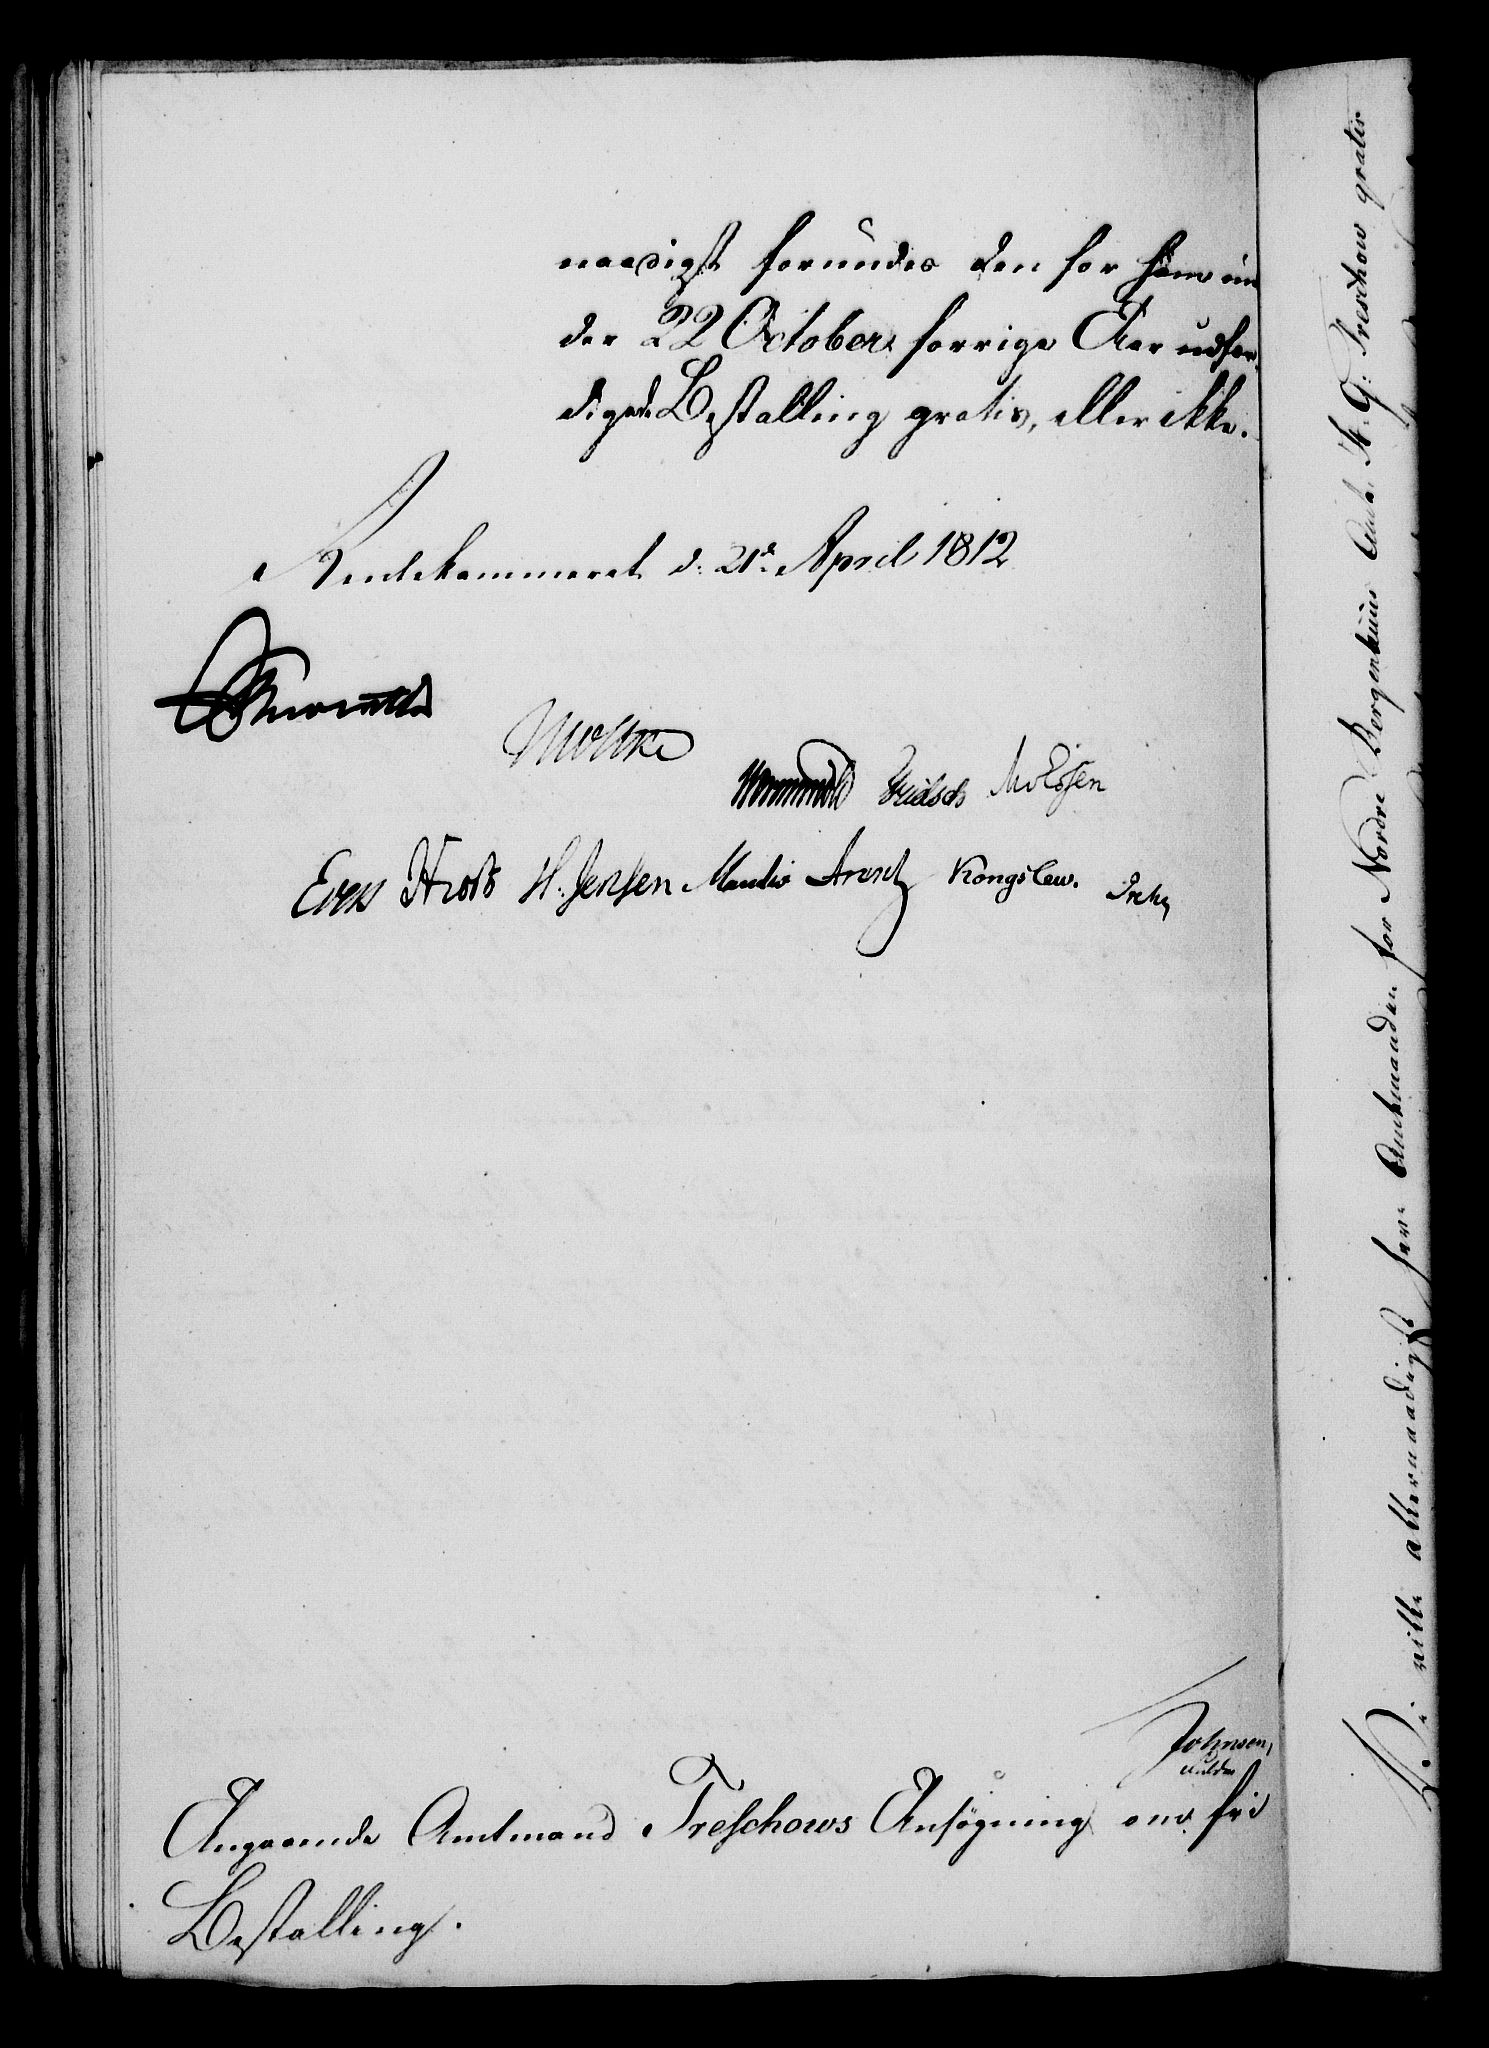 naadigst forundes den for ham un
der 22 October forrige Aar udfær-
digede Bestalling gratis, eller ikke.
Rentekammeret d: 21d. April 1812
Moltke
Wormskiold Fridsch Mvessen
Evers Hrost H. Jensen Manthe Arentz Kongslew.
Johnsen,
Angaaende Amtmand Treschows Ansøgning om fri
Bestalling.
Vi ville allernaadigst have Amtmanden for Nordre Bergenhuus Amt G: Treschow gratis